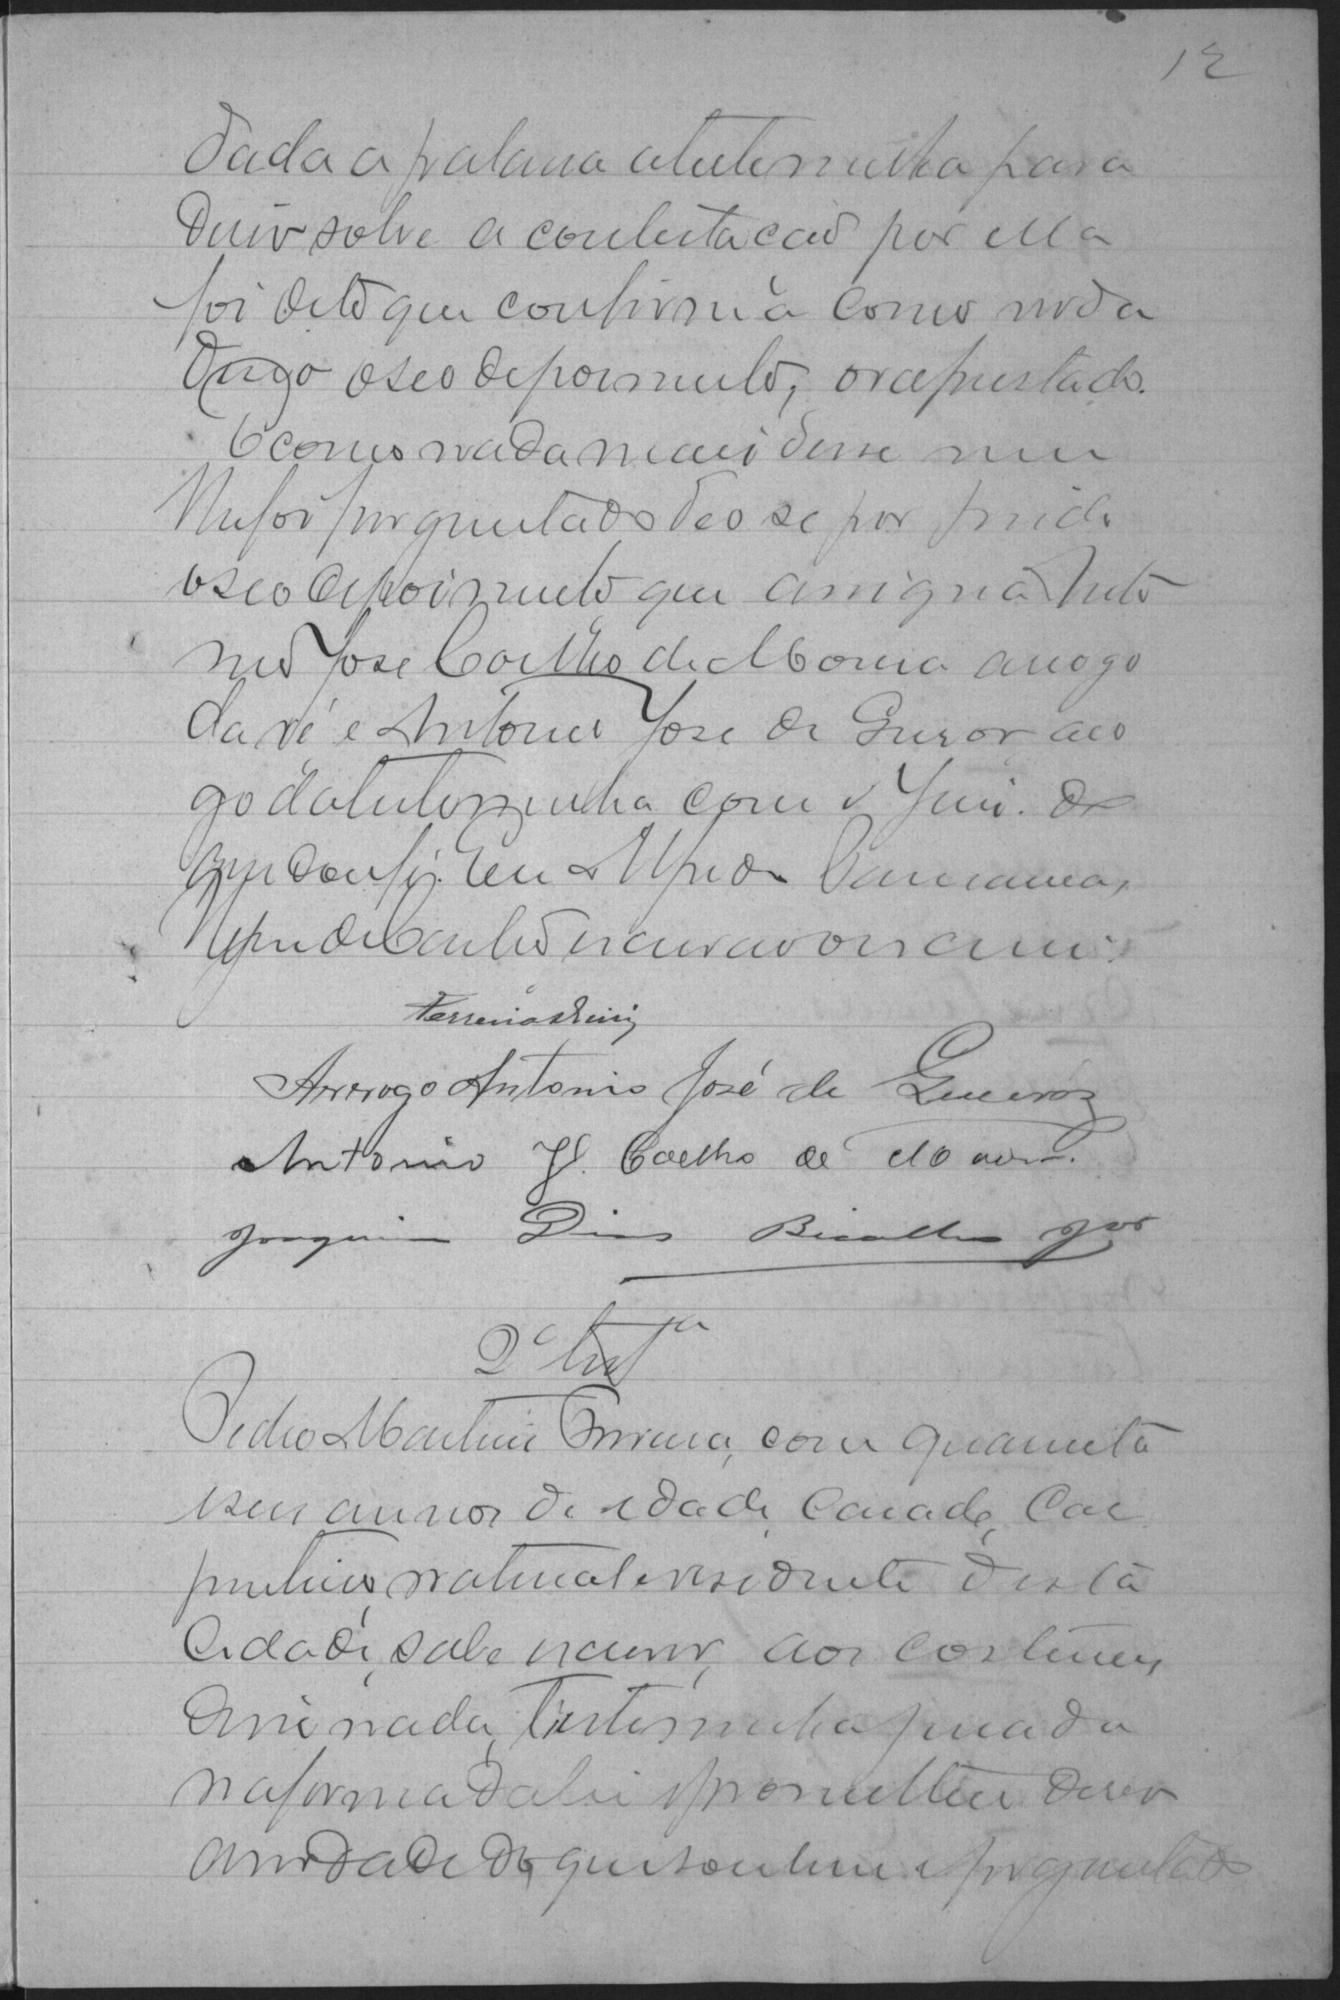 12
Dada a palavra a testemunha para
dizer sobre a contestação por ella
foi dito que confirma como
digo o seo depoimento, ora prestado.
E como nada mais disse nem
lhe foi perguntado deo se por findo
o seo depoimento que assigna Anto
nio José Coelho de Moura a rogo
da ré e Antonio José de Queiroz a ro
go da testemunha com o Juiz. do
que dou fé. Eu Alfredo
escrivão o escrevi.
Arrogo Antonio José de Queiroz
Antonio Jé. Coelho de Moura.
Joaquim Dias Bicalho Jor
2ª testa
Pedro Martins Ferreira, com quarenta
e seis annos de edade, casado, Car
pinteiro, natural e residente desta
Cidade, sabe escrever, aos costumes
disse nada, Testemunha jurada
na forma da lei e prometteu dizer
a verdade do que soubesse e perguntado